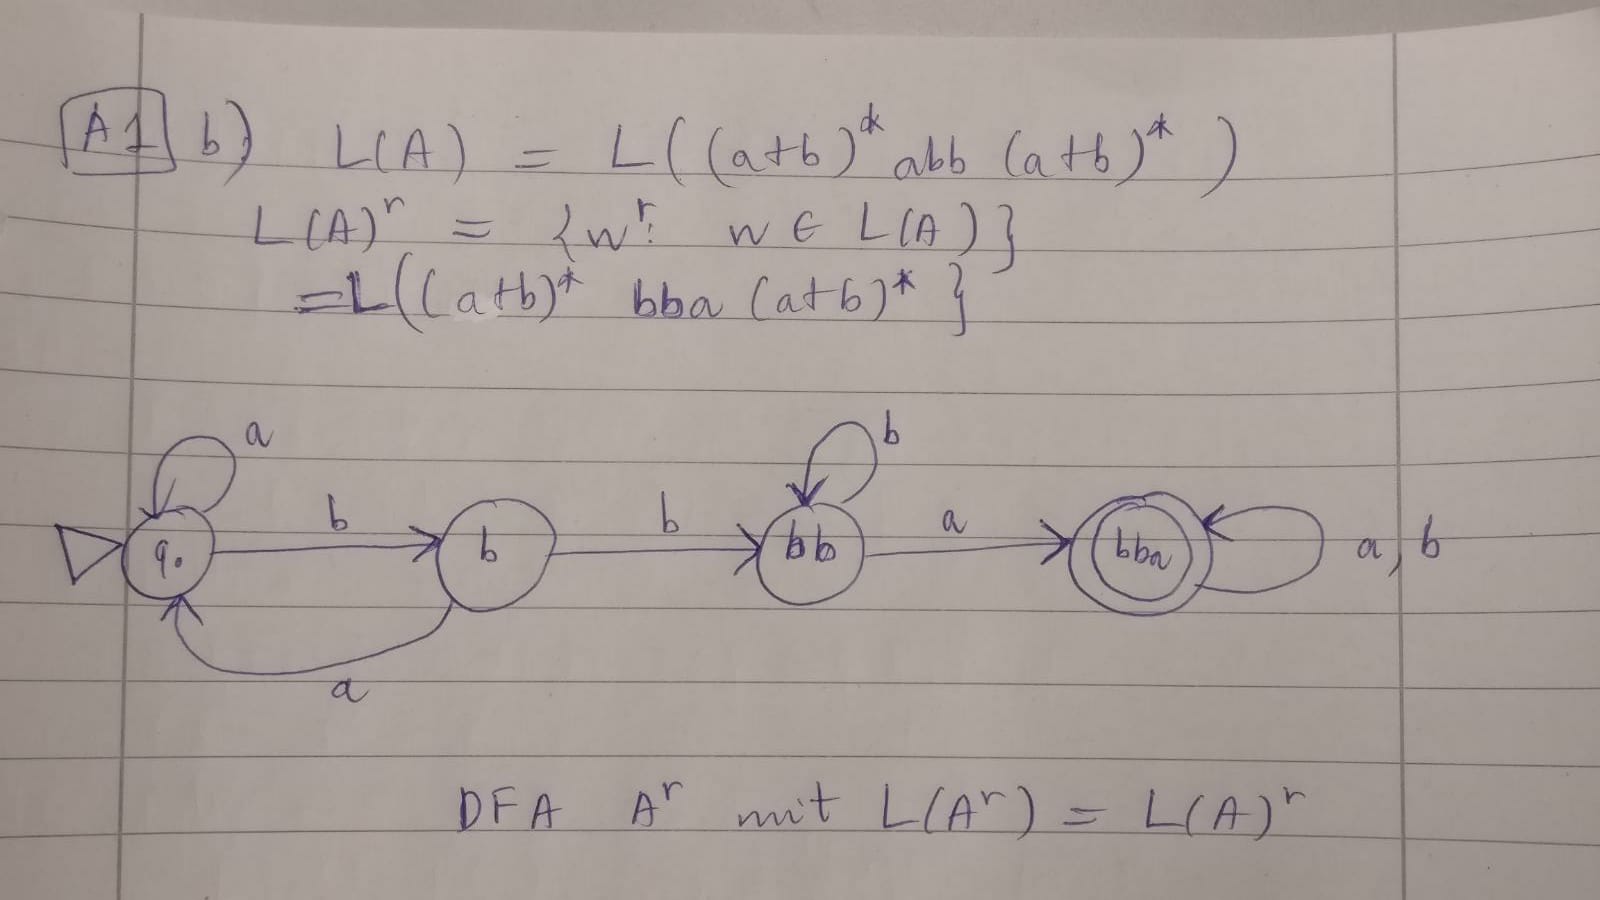 A1 b) L(A) = L((a+b)* abb (a+b)*)
L(A)ʳ = {wʳ: w ∈ L(A)}
= L((a+b)* bba (a+b)*}
a b
b b a
q₀ b bb bba a, b
a
DFA Aʳ mit L(Aʳ) = L(A)ʳ